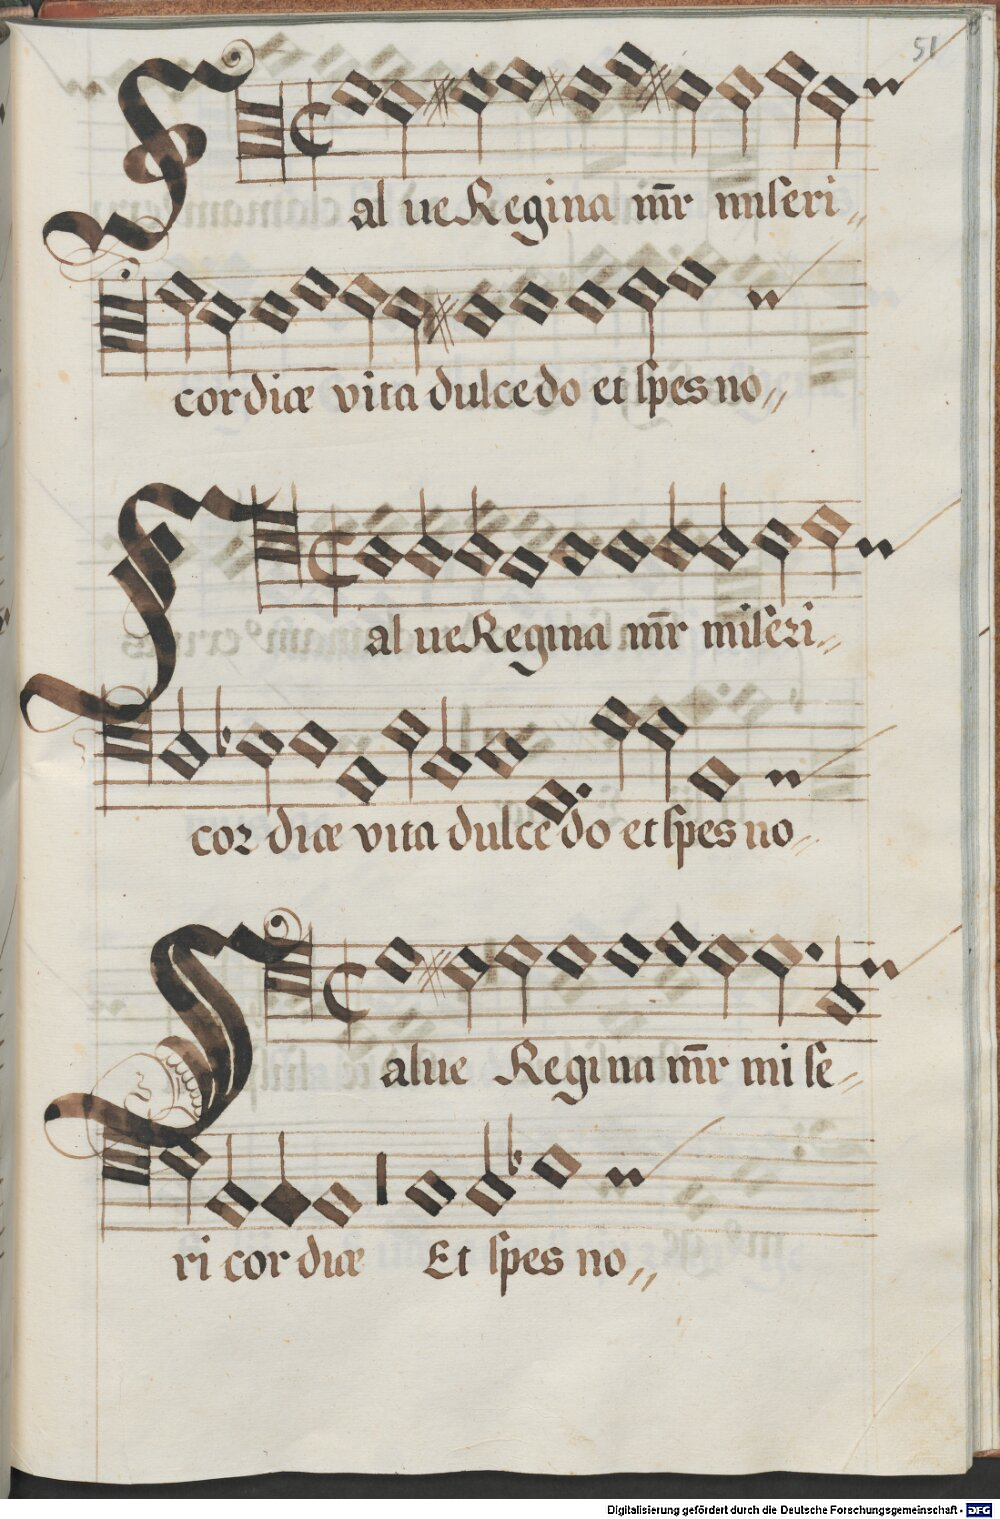 51
Sal ue Regina mr̄ miseri„
cordiæ vita dulcedo et spes no„
Sal ue Regina mr̄ miseri„
cor diæ vita dulcedo et spes no„
Salue Regina mr̄ mi se„
ri cor diæ Et spes no„
Digitalisierung gefördert durch die Deutsche Forschungsgemeinschaft - DFG